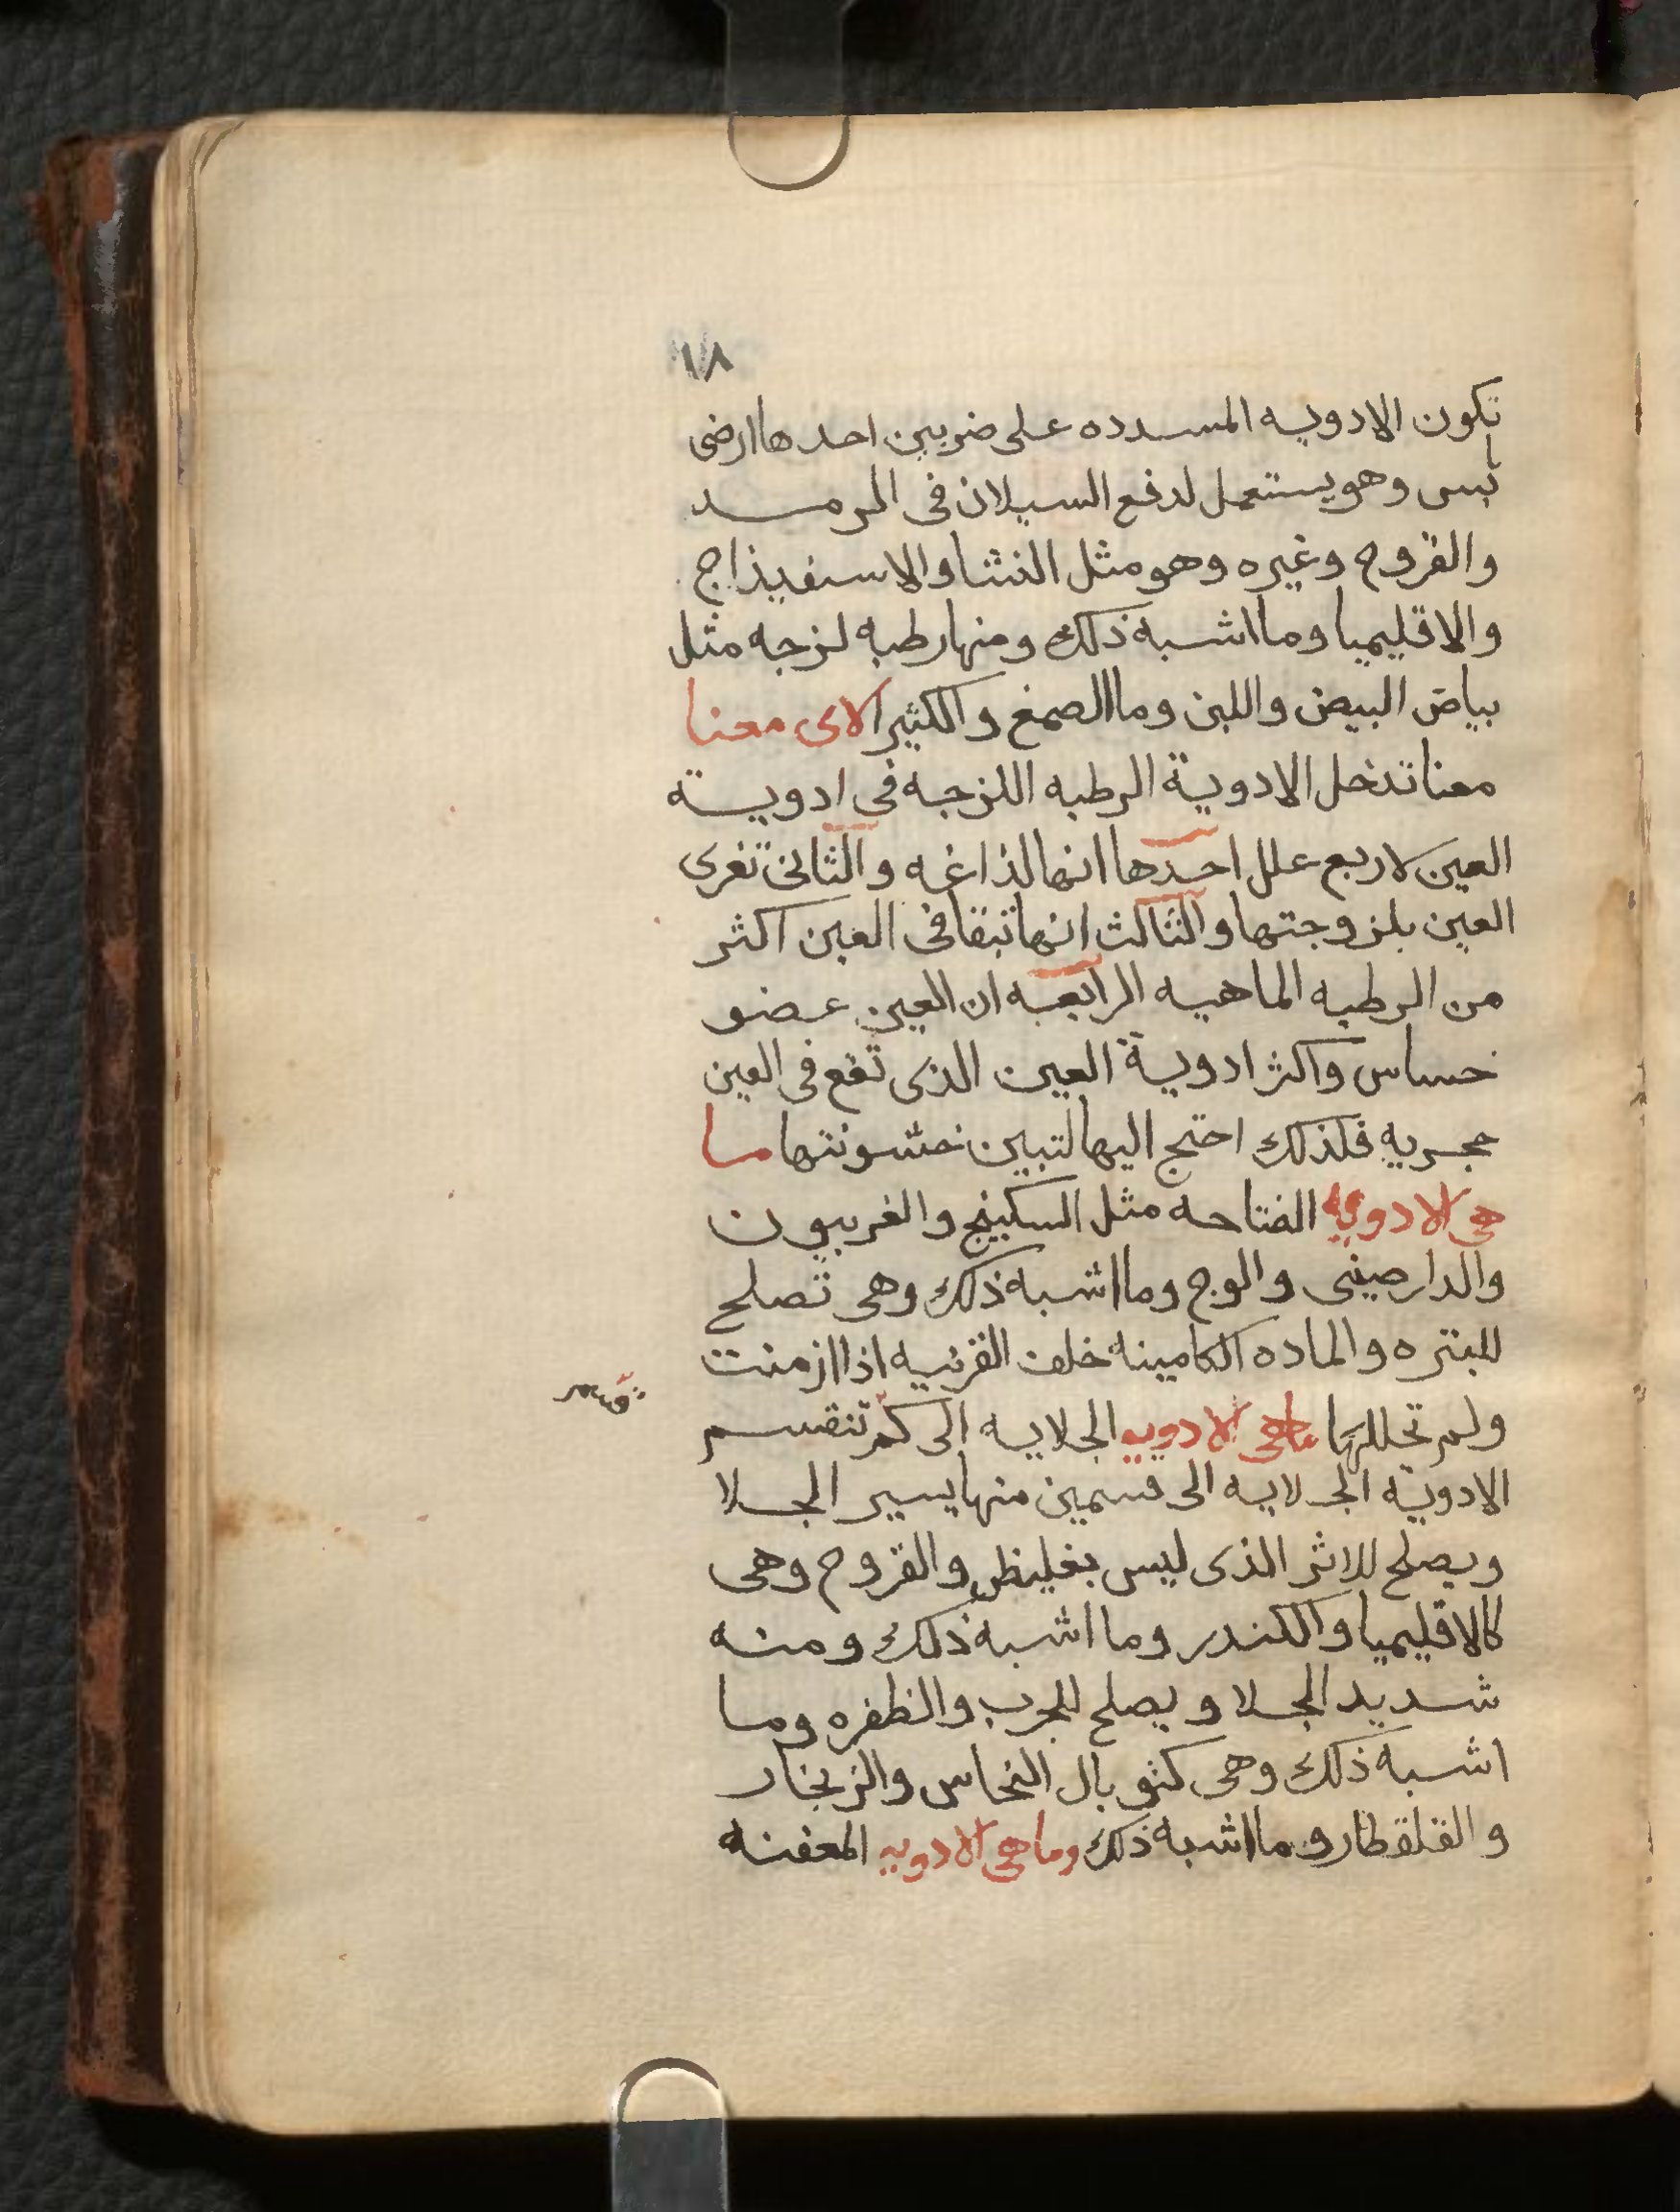 ١٨
تكون الادويه المسدده على ضربين احدها ارضى
يابس وهو يستعمل لدفع السيلان فى المرمد
والقروح وغيره وهو مثل النشا والاسفيذاج
والاقليميا وما اشبه ذلك ومنها رطبه لزجه مثل
بياض البيض واللبن وما الصمغ والكثيرا لاى معنا
معنا تدخل الادوية الرطبه اللزجه فى ادوية
العين لاربع علل احدها انها لذاغه والثانى تغرى
العين بلزوجتها والثالث انها تبقا فى العين اكثر
من الرطبه الماهيه الرابعه ان العين عضو
حساس واكثر ادوية العين الذى تقع فى العين
حجريه فلذلك احتج اليها لتبين خشونتها ما
هى الادويه الفتاحه مثل السكبينج والفربيون
والدارصينى والوج وما اشبه ذلك وهى تصلح
للبثره والماده الكامينه خلف القرنيه اذا ازمنت
ولم تحللها ماهى الادويه الجلايه الى كم تنقسم
الادوية الجلايه الى قسمين منها يسير الجلا
ويصلح للاثر الذى ليس بغليظ والقروح وهى
كالاقليميا والكندر وما اشبه ذلك ومنه
شديد الجلا ويصلح للجرب والظفره وما
اشبه ذلك وهى كثوبال النحاس والزنجار
والقلقطار وما اشبه ذلك وما هى الادويه المعفنه